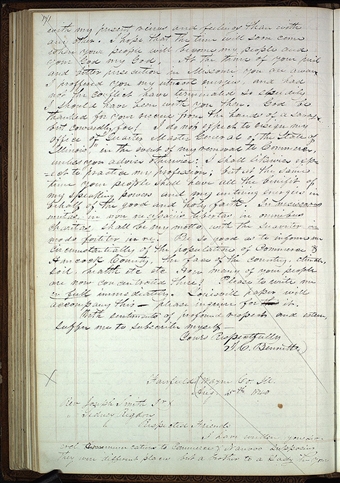 with my present views and feelings than with
any other. I hope that the time will soon come
when your people will become my people and
your God my God. At the time of your peril
and bitter persecution in Missouri you are aware
I proffered you my utmost energies, and had
not the conflict have terminated so speedily
I should have been with you then. God be
thanked for your rescue from the hands of a savage
but cowardly foe! I do not expect to resign my
office of Quarter Master General of the State of
Illinois in the event of my removal to Commerce
unless you advise otherwise; I shall likewise expect
to practice my profession; but at the same
time your people shall have all the benefit of
my speaking powers and my untiring energies in
behalf of the good and holy faith. In necessariis
unitas, in non necessariis libertas, in omnibus
charitas, shall be my motto, with the suaviter in
modo fortiter in re. Be so good as to inform me
circumstantially of the population of Commerce &
Hancock County, the face of the country, climate,
soil, health etc etc. How many of your people
are now concentrated there? Please to write me
in full immediately. Louisville paper will
accompany this please inquire for it.
With sentiments of profound respect and esteem
suffer me to subscribe myself
Yours Respectfully
J. C. Bennett
Fairfield Wayne Co. Ill.
Aug. 15th 1840
Rev Joseph Smith Jr
Sidney Rigdon
Respected Friends
I have under
communications to Commerce & Nauvoo supposing
they were different places but a